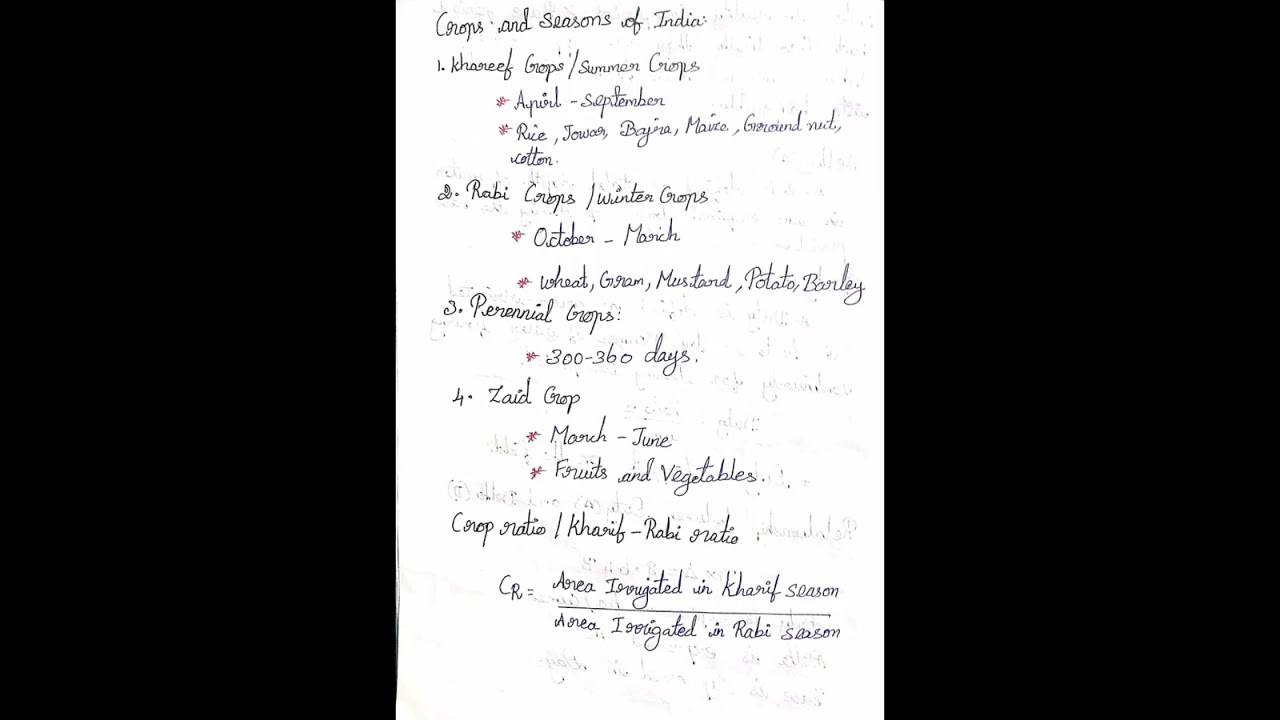 Crops and Seasons of India:
1. Khareef Crops / Summer Crops
* April - September
* Rice, Jowar, Bajra, Maize, Ground nut,
cotton.
2. Rabi Crops / Winter Crops
* October - March
* Wheat, Gram, Mustard, Potato, Barley
3. Perennial Crops:
* 300-360 days.
4. Zaid Crop
* March - June
* Fruits and Vegetables.
Crop ratio / Kharif - Rabi ratio
CR = Area Irrigated in Kharif season
Area Irrigated in Rabi season